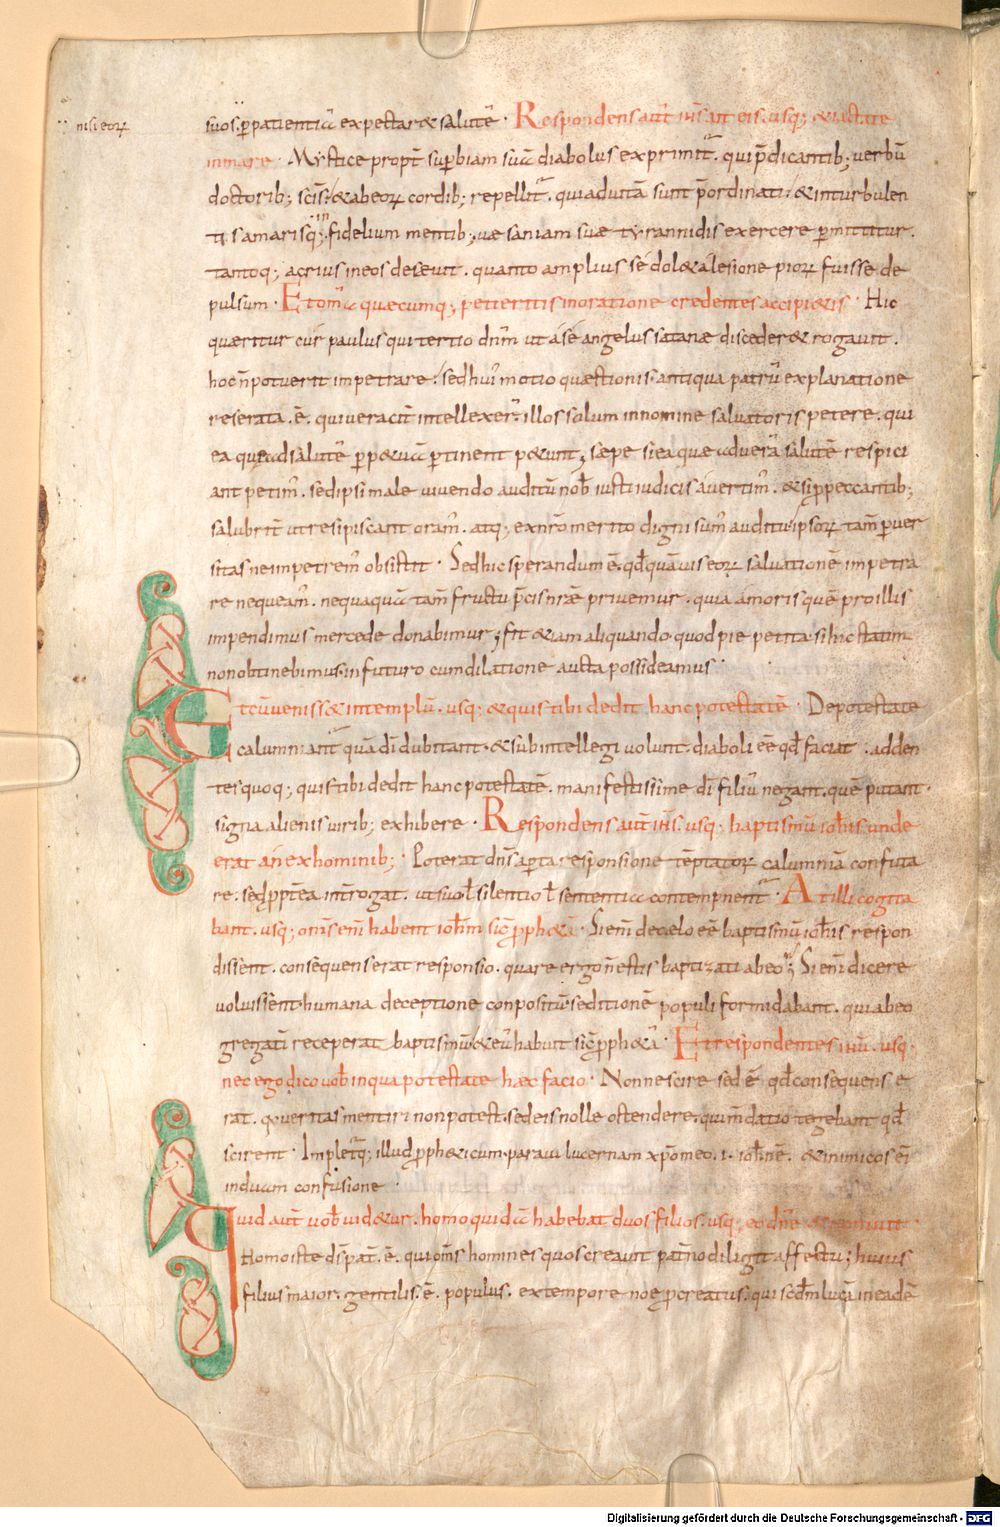 nisi eorꝝ
suos. ꝑ patientiā expectar& salutē. Respondens aut̄ ih̄s ait eis. usq; & iactate
in mare. Mystice propt̄ suꝑbiam suā diabolus exprimit̄. qui p̄dicantib; uerbū
doctorib; sc̄is. & ab eorꝝ cordib; repellit̄. qui ad uitā sunt p̄ordinati. & in turbulen
tis amarisq; in fidelium mentib; uæsaniam suæ tyrannidis exercere ꝑmittitur.
tantoq; acrius in eos deseuit. quanto amplius se dol& a lesione piorꝝ fuisse de
pulsum. Et om̄ia quæcumq; petieritis in oratione credentes accipi&is. Hic
quæritur cur paulus qui tertio dn̄m ut a se angelus satanæ disceder& rogauit.
hoc n̄ potuerit impetrare. sed hui᾽ motio quæstionis antiqua patrū explanatione
reserata. ē. qui ueracit̄ intellexer̄. illos solum in nomine saluatoris petere. qui
ea quæ ad salutē ꝑp&uā ꝑtinent p&unt; sæpe si ea quæ ad uerā salutē respici
ant petim᾽. sed ipsi male uiuendo auditū nob̄ iusti iudicis auertim᾽. & si ꝓ peccantib;
salubrit̄ ut resipiscant oram᾽. atq; ex nr̄o merito digni sum᾽ auditu. ipsorꝝ tam̄ ꝑuer
sitas ne impetrem᾽ obsistit. Sed hic sperandum ē. qd̄ quāuis eorꝝ saluationē impetra
re nequeam᾽. nequaquā tam̄ fructu p̄cis nr̄æ priuemur. quia amoris quē pro illis
impendimus mercede donabimur; fit &iam aliquando quod pie petita. si hic statim
non obtinebimus. in futuro cum dilatione aucta possideamus.
Et cū uenisset in templū. usq; & quis tibi dedit hanc potestatē. De potestate
calumniant̄ quā di dubitant. & subintellegi uolunt. diaboli eē qd̄ faciat. adden
tesquoq; quis tibi dedit hanc potestatē. manifestissime dī filiū negant. quē putant
signa alienis uirib; exhibere. Respondens aut̄ ih̄s. usq; baptismū ioh̄is unde
erat an ex hominib;. Poterat dn̄s aꝑta responsione tēptatorꝝ calumniā confuta
re. sed ꝓpt̄ea int̄rogat. ut suo ł silentio ł sententia contempnent̄. At illi cogita
bant. usq; om̄s eni᾽ habent ioh̄m sic̄ ꝓph&ā. Si eni᾽ de cælo eē baptismū ioh̄is respon
dissent. consequens erat responsio. quare ergo n̄ estis baptizati ab eo; Si eni᾽ dicere
uoluissent humana deceptione conpositū. seditionē populi formidabant. qui ab eo
gregatī receperat baptismū. & eū habuit sic̄ ꝓph&ā. Et respondentes ih̄u. usq;
nec ego dico uob̄ in qua potestate hæc facio. Non nescire sed ē qd̄ consequens e
rat. q̄ ueritas mentiri non potest. sed eis nolle ostendere. qui m̄datio tegebant qd̄
scirent. Implet̄q; illud ꝓph&icum. paraui lucernam xp̄o meo. i. ioh̄nē. & inimicos ei᾽
induam confusione.
Quid aut̄ uob̄ uid&ur. homo quidā habebat duos filios. usq;
Homo iste d̄s pat̄. ē. qui om̄s homines quos creauit pat̄no diligit affectu; huius
filius maior. gentilis. ē. populus. ex tempore noe ꝓcreatus. qui scd̄m lucā in eadē
Digitalisierung gefördert durch die Deutsche Forschungsgemeinschaft - DFG